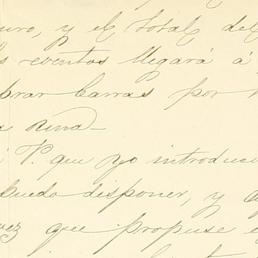 uro, y el total del
s eventos llegará á
prar barras por
a suma_
P. que yo introduci
puedo disponer, y
vez que propuse e